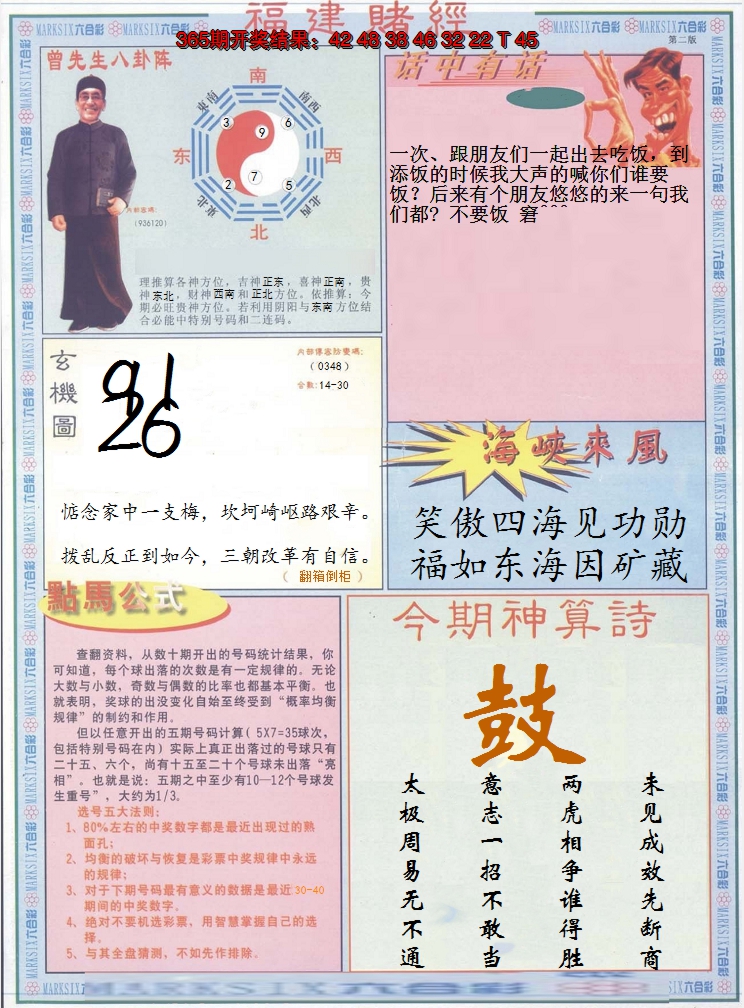 福建賭經
365期开奖结果：42 48 38 46 32 22 T 45
MARKSIX六合彩
第二版
曾先生八卦阵
南
東南
南西
3
9
6
东
西
2
7
5
東北
北西
北
内部密碼:
(936120)
理推算各神方位，吉神正东，喜神正南，贵
神东北，财神西南和正北方位。依推算：今
期必旺贵神方位。若利用阴阳与东南方位结
合必能中特别号码和二连码。
话中有话
一次、跟朋友们一起出去吃饭，到
添饭的时候我大声的喊你们谁要
饭？后来有个朋友悠悠的来一句我
们都? 不要饭 窘^^^
玄機圖
91
26
(0348)
合数:14-30
惦念家中一支梅，坎坷崎岖路艰辛。
拨乱反正到如今，三朝改革有自信。
（ 翻箱倒柜 ）
海峽來風
笑傲四海见功勋
福如东海因矿藏
點馬公式
查翻资料，从数十期开出的号码统计结果，你
可知道，每个球出落的次数是有一定规律的。无论
大数与小数，奇数与偶数的比率也都基本平衡。也
就表明，奖球的出没变化自始至终受到“概率均衡
规律”的制约和作用。
但以任意开出的五期号码计算( 5X7=35球次，
包括特别号码在内) 实际上真正出落过的号球只有
二十五、六个，尚有十五至二十个号球未出落“亮
相”。也就是说：五期之中至少有10—12个号球发
生重号”，大约为1/3。
选号五大法则：
1、80%左右的中奖数字都是最近出现过的熟
面孔；
2、均衡的破坏与恢复是彩票中奖规律中永远
的规律；
3、对于下期号码最有意义的数据是最近 30-40
期间的中奖数字。
4、绝对不要机选彩票，用智慧掌握自己的选
择。
5、与其全盘猜测，不如先作排除。
今期神算詩
鼓
太极周易无不通
意志一招不敢当
两虎相争谁得胜
未见成效先断商